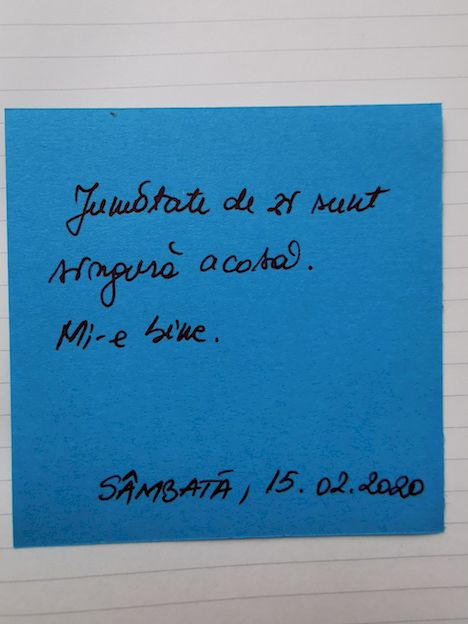 Jumătate de zi sunt
singură acasă.
Mi-e bine.
SÂMBATĂ, 15.02.2020